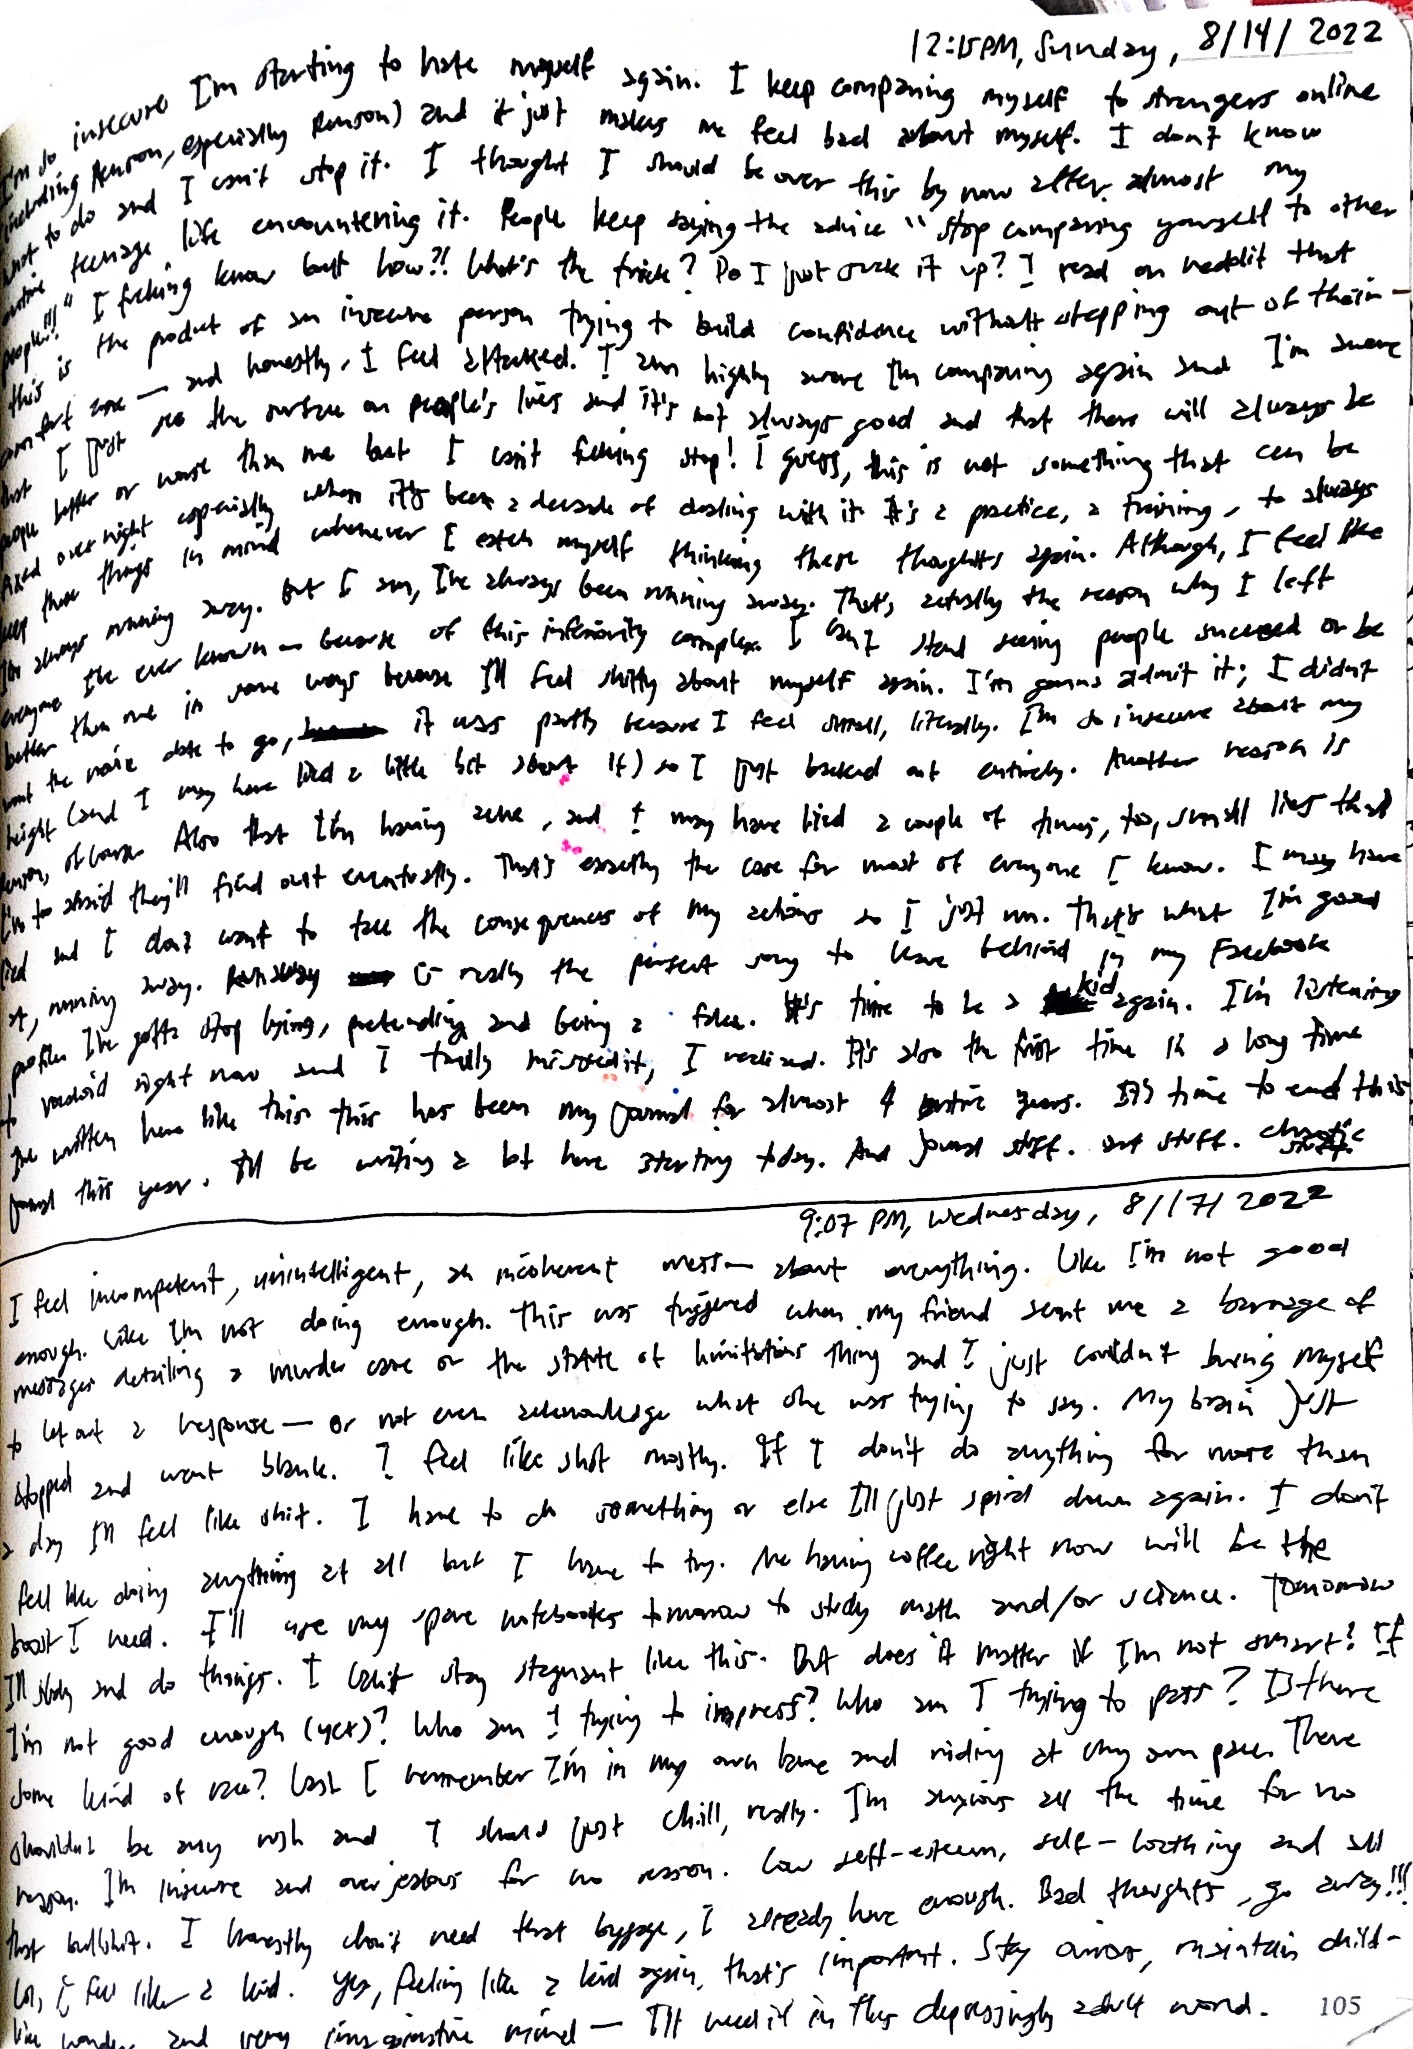 12:15PM, Sunday, 8/14/2022
I'm so insecure I'm starting to hate myself again. I keep comparing myself to strangers online
(including, especially) and it just makes me feel bad about myself. I don't know
what to do and I can't stop it. I thought I should be over this by now after almost my
entire teenage life encountering it. People keep saying the advice "stop comparing yourself to other
people!!!" I fucking know but how?! What's the trick? Do I just suck it up? I read on reddit that
this is the product of an insecure person trying to build confidence without stepping out of their
comfort zone — and honestly, I feel attacked. I am highly aware I'm comparing again and I'm aware
that I just see the surface on people's lives and it's not always good and that there will always be
people better or worse than me but I can't fucking stop! I guess, this is not something that can be
fixed over night especially when it's been a decade of dealing with it. It's a practice, a training, to always
keep those things in mind whenever I catch myself thinking these thoughts again. Although, I feel like
I'm always running away. But I am, I've always been running away. That's actually the reason why I left
everyone I've ever known — because of this inferiority complex. I can't stand seeing people succeed or be
better than me in some ways because I'll feel shitty about myself again. I'm gonna admit it; I didn't
want the movie date to go, it was partly because I feel small, literally. I'm so insecure about my
height (and I may have lied a little bit about it) so I just backed out entirely. Another reason is
of course. Also that I'm having acne, and I may have lied a couple of times, too, small lies that
I'm too afraid they'll find out eventually. That's exactly the case for most of everyone I know. I may have
lied and I don't want to face the consequences of my actions so I just run. That's what I'm good
at, running away. Runaway is really the perfect song to leave behind in my Facebook
profile. I've gotta stop lying, pretending and being a fake. It's time to be a kid again. I'm listening
to right now and I totally missed it, I realized. It's also the first time in a long time
I've written here like this. This has been my journal for almost 4 entire years. It's time to end this
journal this year. I'll be writing a lot here starting today. And journal stuff. art stuff. chaotic stuff.
9:07 PM, Wednesday, 8/17/2022
I feel incompetent, unintelligent, an incoherent mess — about everything. Like I'm not good
enough. Like I'm not doing enough. This was triggered when my friend sent me a barrage of
messages detailing a murder case or the statute of limitations thing and I just couldn't bring myself
to let out a response — or not even acknowledge what she was trying to say. My brain just
stopped and went blank. I feel like shit mostly. If I don't do anything for more than
a day I'll feel like shit. I have to do something or else I'll just spiral down again. I don't
feel like doing anything at all but I have to try. Me having coffee right now will be the
boost I need. I'll use my spare notebooks tomorrow to study math and/or science. Tomorrow
I'll study and do things. I can't stay stagnant like this. But does it matter if I'm not smart? If
I'm not good enough (yet)? Who am I trying to impress? Who am I trying to pass? Is there
some kind of race? Last I remember I'm in my own lane and riding at my own pace. There
shouldn't be any rush and I should just chill, really. I'm anxious all the time for no
reason. I'm insecure and over jealous for no reason. Low self-esteem, self-loathing and all
that bullshit. I honestly don't need that baggage, I already have enough. Bad thoughts, go away!!!
Lol, I feel like a kid. Yes, feeling like a kid again, that's important. Stay curious, maintain child-
like wonder and very imaginative mind — I'll need it in this depressingly adult world.
105